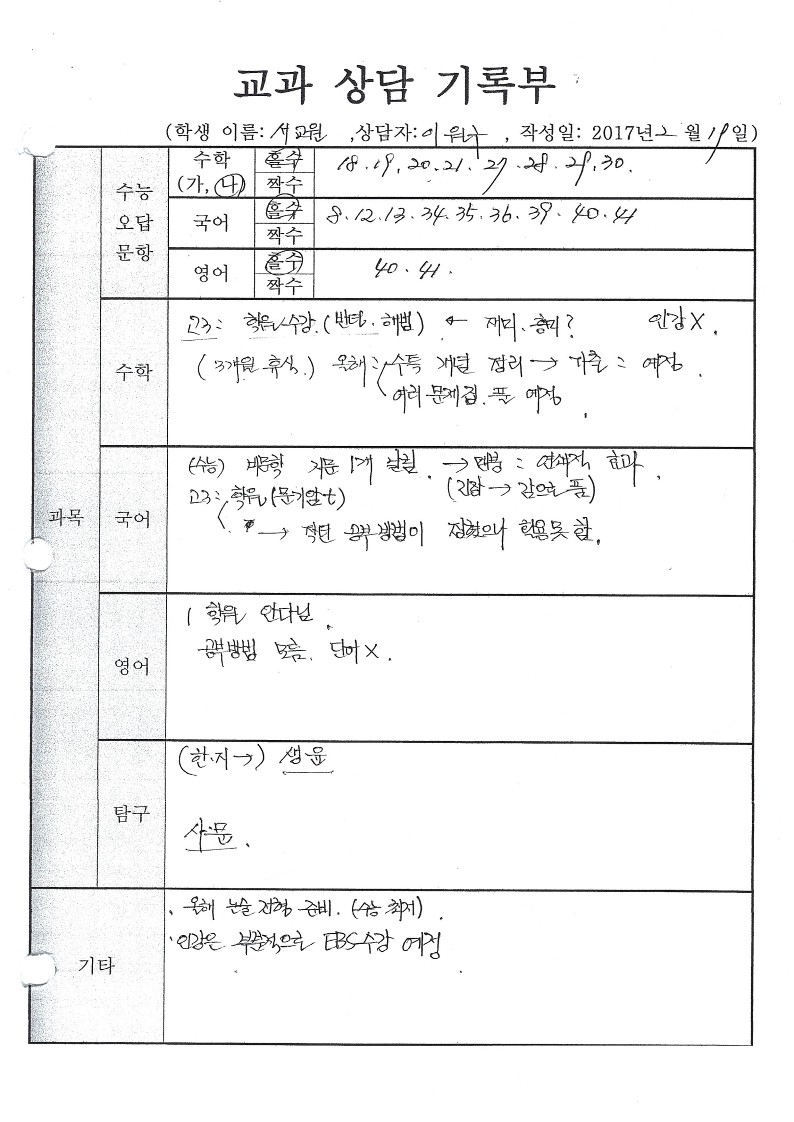 교과 상담 기록부
(학생 이름: 서교원 ,상담자: 이 , 작성일: 2017년 2 월 19일)
수능 오답 문항
수학 (가, 나) 홀수 짝수 18.19.20.21.27.28.29.30.
국어 홀수 짝수 8.12.13.34.35.36.39.40.41
영어 홀수 짝수 40.41.
과목
수학
고3: 학원수강.(반타. 해법) ← 재미. 흥미? 인강X.
(3개월 휴식.) 올해: 수특 개념 정리 → 기출: 예정.
여러 문제집. 풀 예정.
국어
(수능) 비문학 지문 1개 날림. → 멘붕: 연쇄적 효과.
고3: 학원(문기알t) (긴장 → 감으로 품)
→ 적던 공부방법이 정했으나 학용못 함.
영어
학원 안다님.
공부방법 모름. 단어X.
탐구
(한.지→) 생윤
사문.
기타
. 올해 논술 전형 준비. (수능 최저).
. 인강은 부분적으로 EBS수강 예정